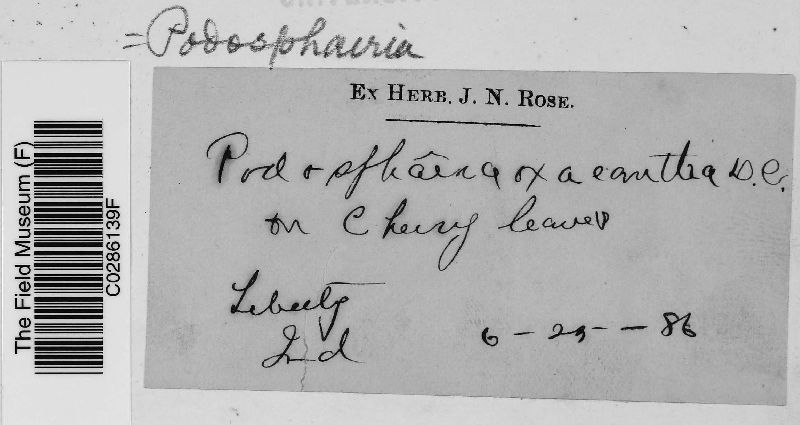 =Podosphaeria
EX HERB. J. N. ROSE.
Podosphaera oxacantha D.C.
on Cherry leaves
Liberty
Ind
6 - 29 - 86
The Field Museum (F)
C0286139F